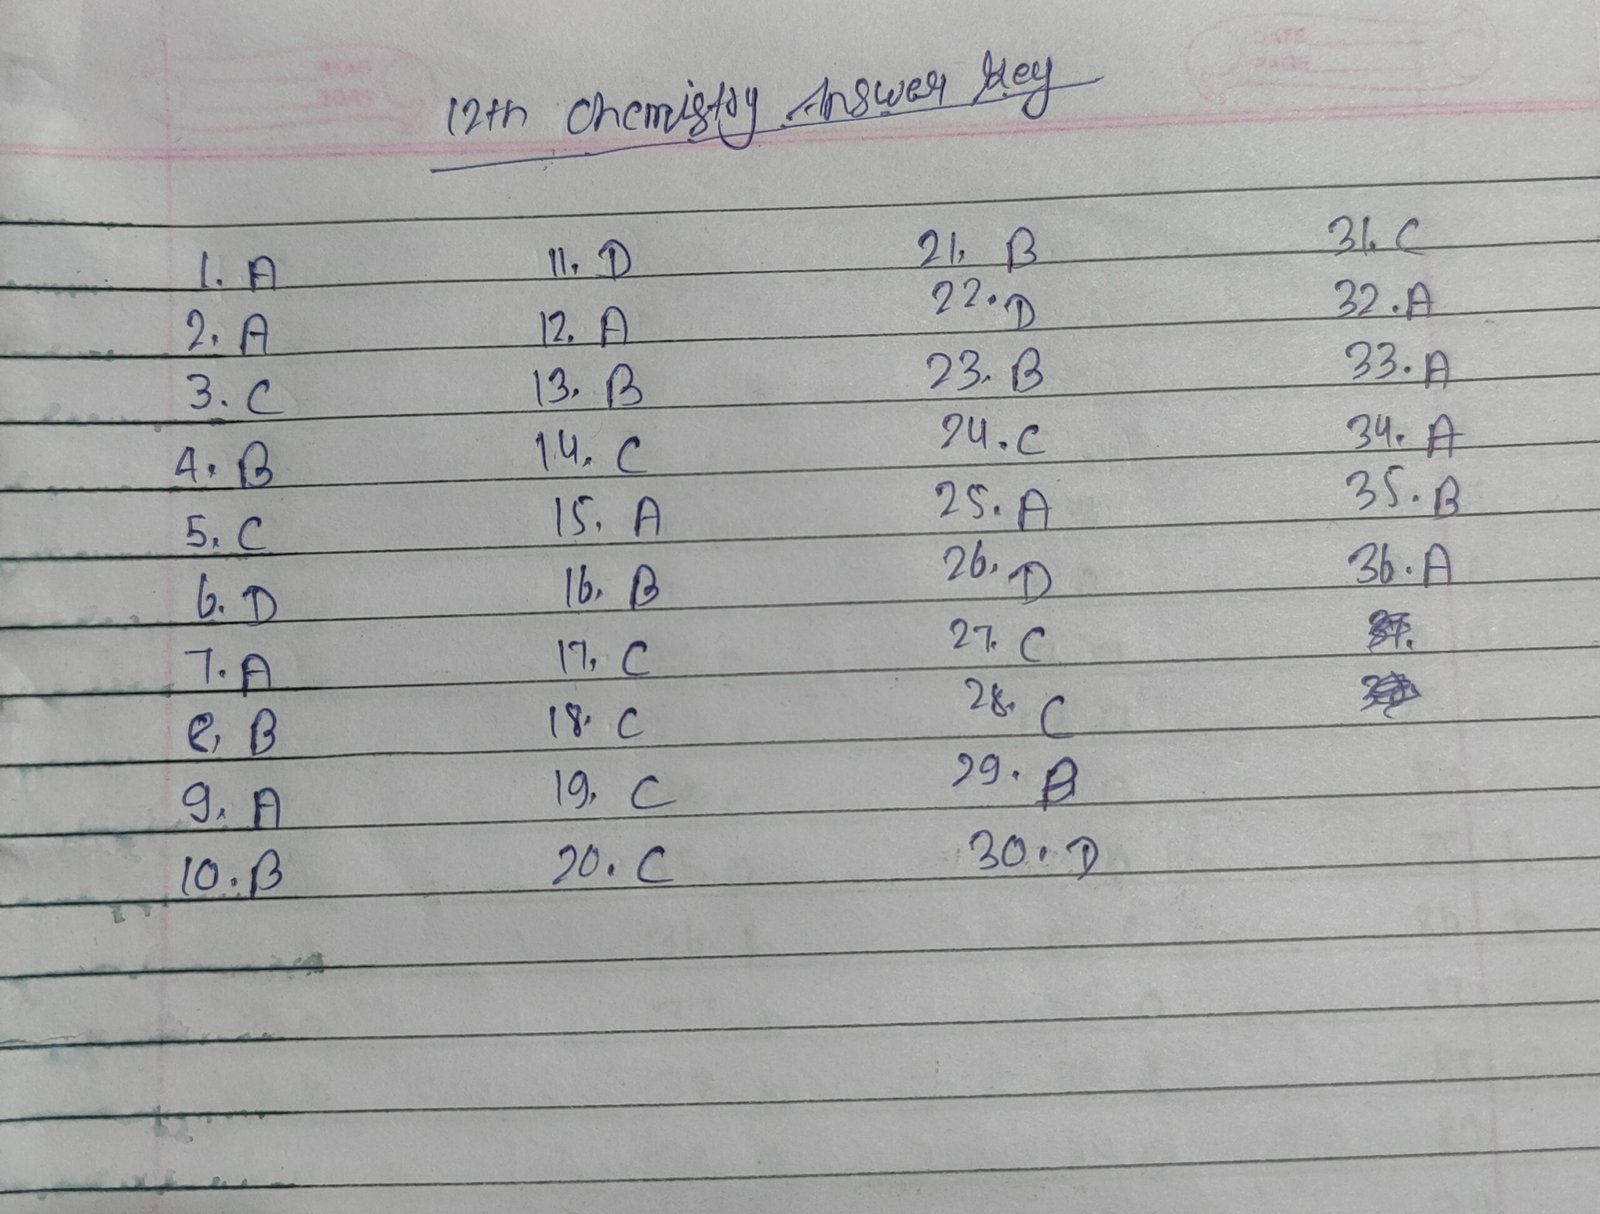 12th Chemistry Answer Key
1. A
2. A
3. C
4. B
5. C
6. D
7. A
8. B
9. A
10. B
11. D
12. A
13. B
14. C
15. A
16. B
17. C
18. C
19. C
20. C
21. B
22. D
23. B
24. C
25. A
26. D
27. C
28. C
29. B
30. D
31. C
32. A
33. A
34. A
35. B
36. A